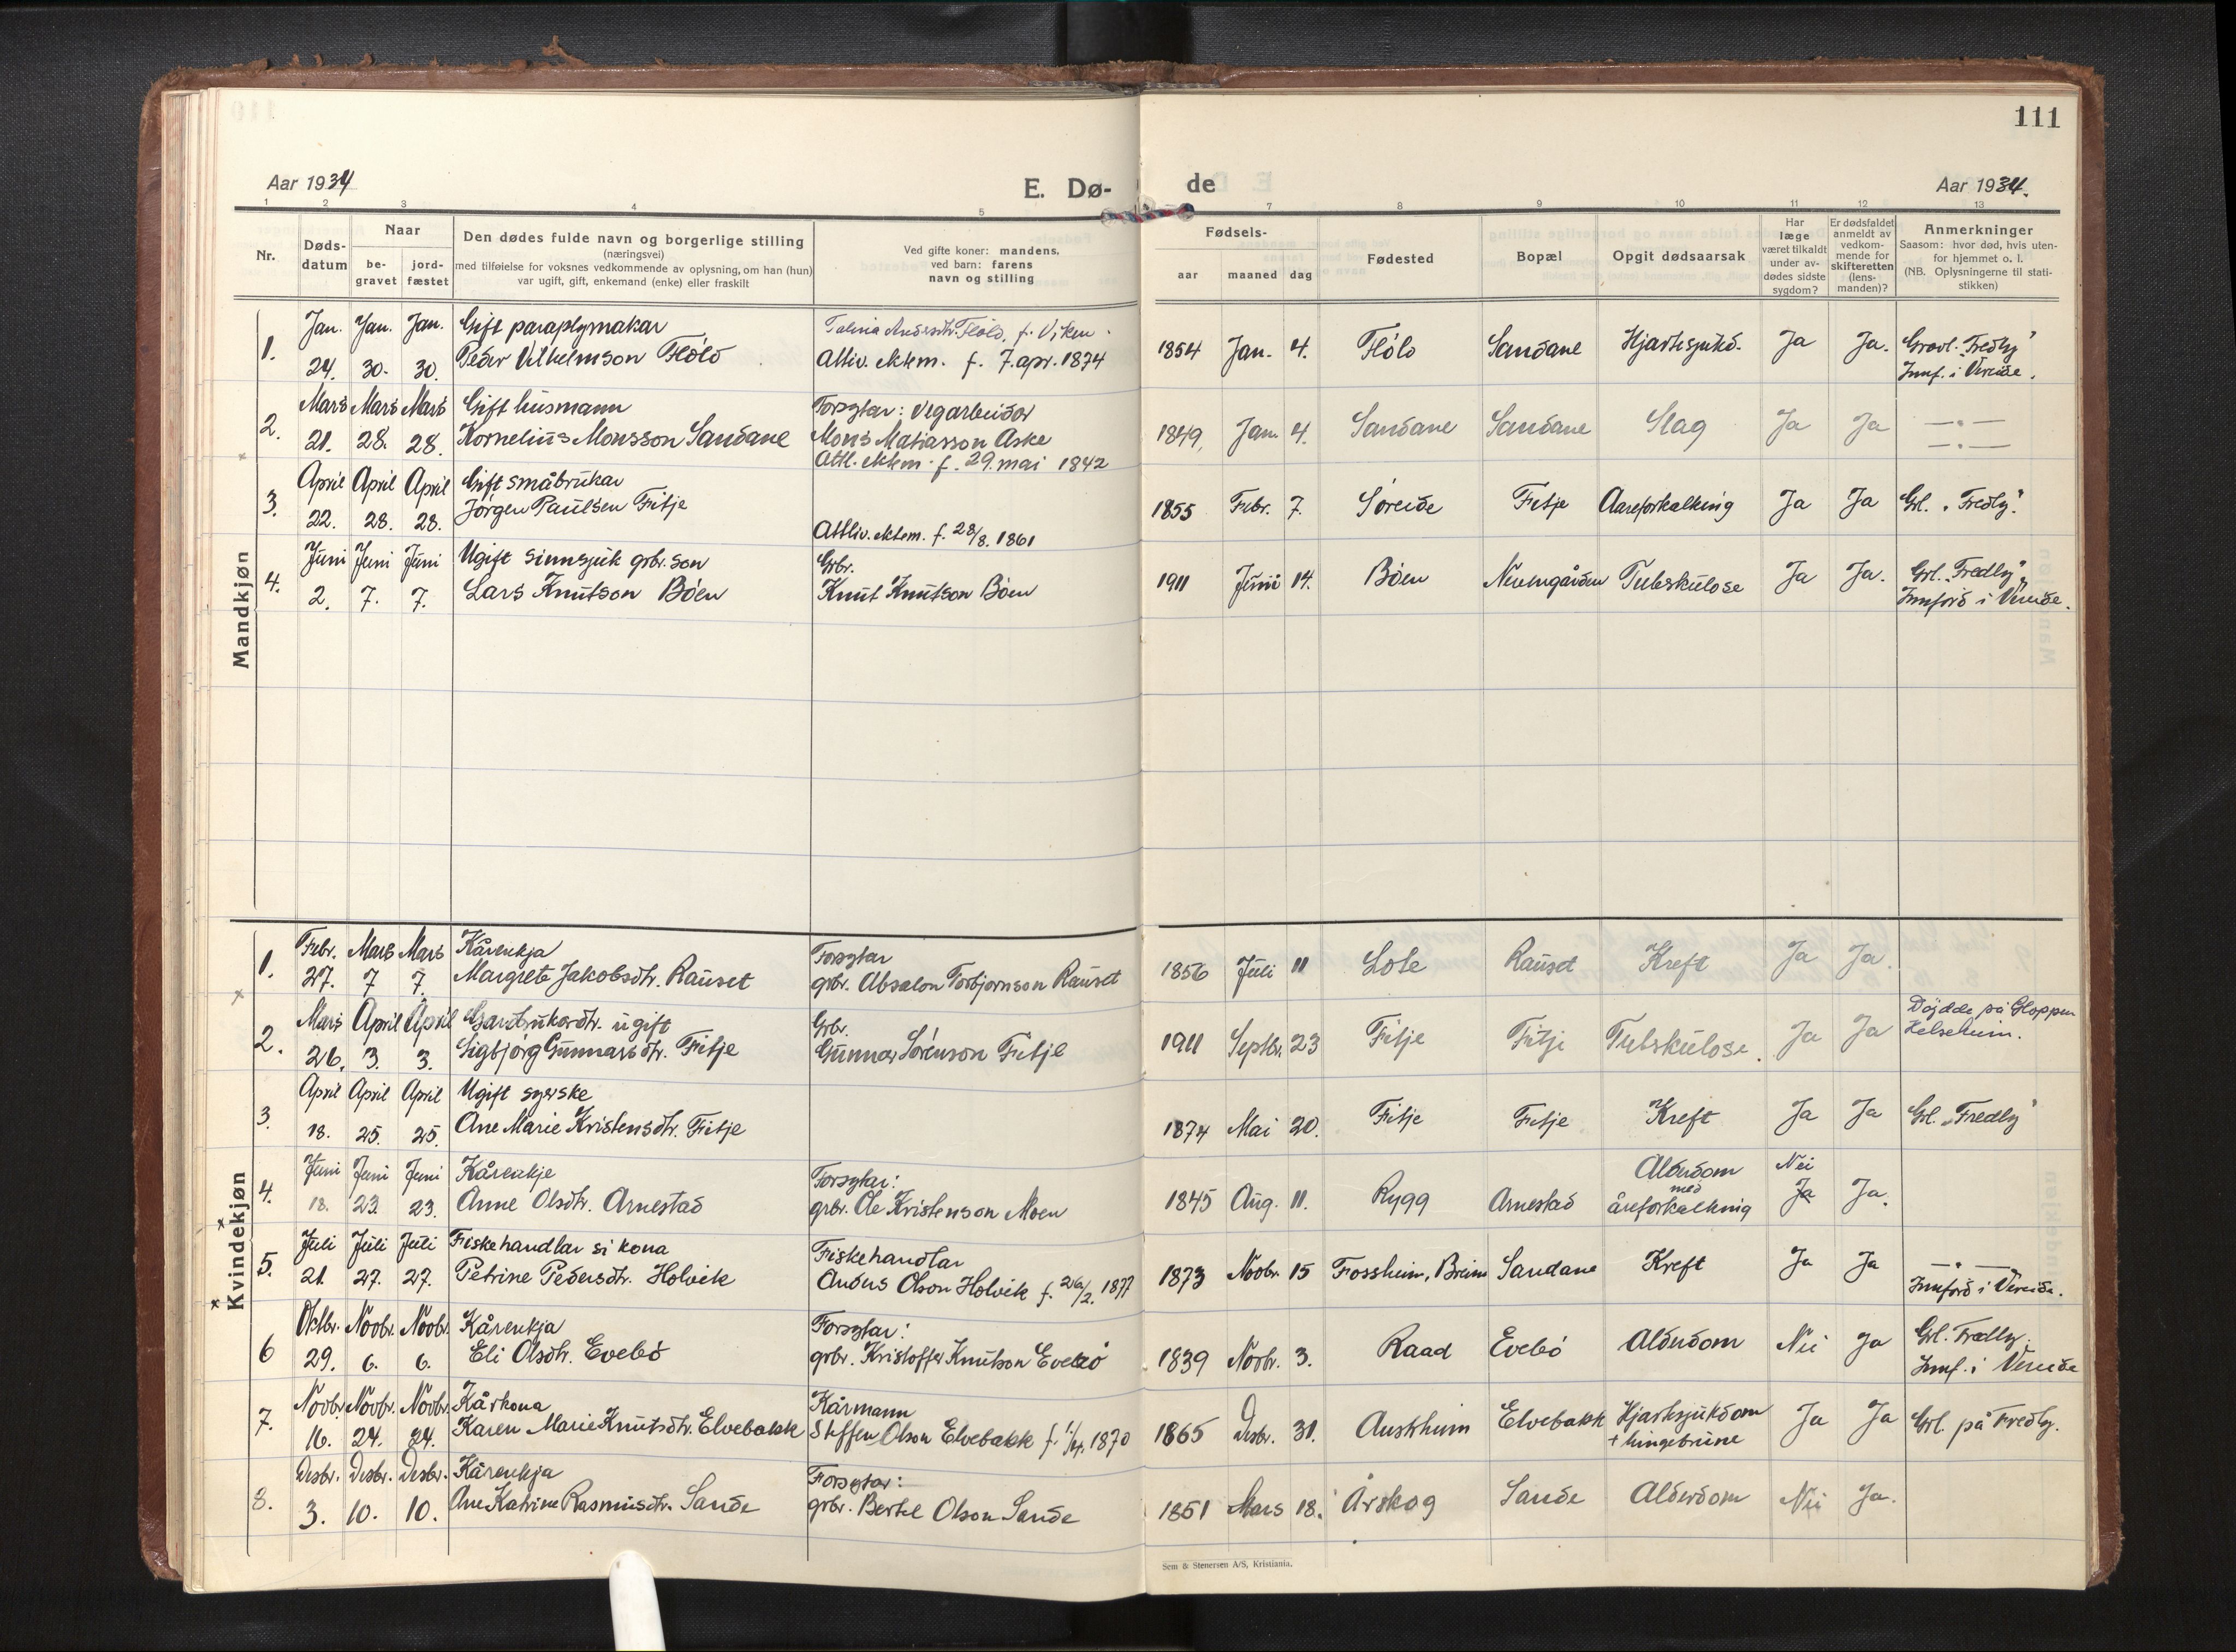 111
Aar 1934
E. Dø-
de
Aar 1934.
1 2 3 4 5 7 8 9 10 11 12 13
Nr.
Døds-
datum
Naar
be-
gravet
jord-
fæstet
Den dødes fulde navn og borgerlige stilling
(næringsvei)
med tilføielse for voksnes vedkommende av oplysning, om han (hun)
var ugift, gift, enkemand (enke) eller fraskilt
Ved gifte koner: mandens,
ved barn: farens
navn og stilling
Fødsels-
aar maaned dag
Fødested
Bopæl
Opgit dødsaarsak
Har
læge
været tilkaldt
under av-
dødes sidste
sygdom?
Er dødsfaldet
anmeldt av
vedkom-
mende for
skifteretten
(lens-
manden)?
Anmerkninger
Saasom: hvor død, hvis uten-
for hjemmet o. l.
(NB. Oplysningerne til stati-
stikken)
Mandkjøn
1. Jan. Jan. Jan. Gift paraplymakar f. Viken
24. 30. 30. Peder Vilhelmson Flölo Attliv. ektem. f. 7. apr. 1874 1854 Jan. 4. Flölo Sandane Hjartesjukd. Ja Ja. Gravl. "Fredly"
Innf. i Vereide.
2. Mars Mars Mars Gift husmann Forsytar: Vegarbeidar
21. 28. 28. Kornelius Monsson Sandane Mons Matiasson Aske 1849. Jan. 4. Sandane Sandane Slag Ja Ja —·—
Attl. ektem. f. 29. mai 1842 —·—
3. April April April Gift småbrukar
22. 28. 28. Jörgen Paulsen Fitje 1855 Febr. 7. Söreide Fitje Aareforkalking Ja Ja Grl. "Fredly".
Attliv. ektem. f. 28/8. 1861
4. Juni Juni Juni Ugift sinnsjuk grbr. son Grbr.
2. 7. 7. Lars Knutson Böen Knut Knutson Böen 1911 Juni 14. Böen Neumgården Tubskulose Ja Ja. Grl. "Fredly",
Innförd i Vereide.
Kvindekjøn
1. Febr. Mars Mars Kårenkja Forsytar
27. 7 7. Margrete Jakobsdtr. Rauset grbr. Absalon Torbjornson Rauset 1856 Juli 11 Lote Rauset Kreft Ja Ja.
2. Mars April April Gardbrukardtr. ugift Grbr.
26. 3. 3. Sigbjörg Gunnarsdtr. Fitje Gunnar Sörenson Fitje 1911 Septbr. 23 Fitje Fitje Tubskulose. Ja Ja Döydde på Gloppen
Helseheim.
3. April April April Ugift syerske
18. 25. 25. Ane Marie Kristensdtr. Fitje 1874 Mai 20. Fitje Fitje Kreft Ja Ja Grl. "Fredly"
4. Juni Juni Juni Kårenkje Forsytar: Alderdom Nei
18. 23. 23. Anne Olsdtr. Arnestad grbr. Ole Kristenson Moen 1845 Aug. 11. Rygg Arnestad med åreforkalking Ja Ja.
5. Juli Juli Juli Fiskehandlar si kona Fiskehandlar
21. 27. 27. Petrine Pedersdtr. Holvik Anders Olson Holvik f. 26/2. 1877 1873 Novbr. 15 Fossheim, Breim Sandane Kreft Ja Ja —·—
Innförd i Vereide.
6 Oktbr. Novbr. Novbr. Kårenkja Forsytar:
29. 6. 6. Eli Olsdtr. Evebö grbr. Kristoffer Knutson Evebö 1839 Novbr. 3. Raad Evebö Alderdom Nei Ja Grl. Fredly.
Innf. i Vereide
7. Novbr. Novbr. Novbr. Kårkona Kårmann
16. 24. 24. Karen Marie Knutsdtr. Elvebakk Steffen Olson Elvebakk f. 1/4. 1870 1865 Desbr. 31. Austrheim Elvebakk Hjartesjukdom Ja Ja Grl. på Fredly.
+ lungebrune
8. Desbr. Desbr. Desbr. Kårenkja Forsytar:
3. 10. 10. Ane Katrine Rasmusdtr. Sande grbr. Bertel Olson Sande 1851 Mars 18. Årskog Sande Alderdom Nei Ja.
Sem & Stenersen A/S, Kristiania.